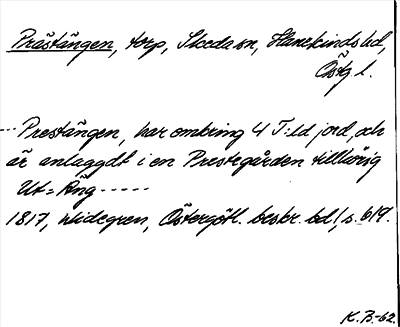 Prästängen, torp, Skeda sn, Hanekinds hd,
Östg l.
--- Prestängen, har omkring 4 T:ld jord, och
är anlaggdt i en Prestegården tillhörig
Ut=Äng -----
1817, Widegren, Östergötl. beskr. bd 1, s. 619.
K.B.-62.